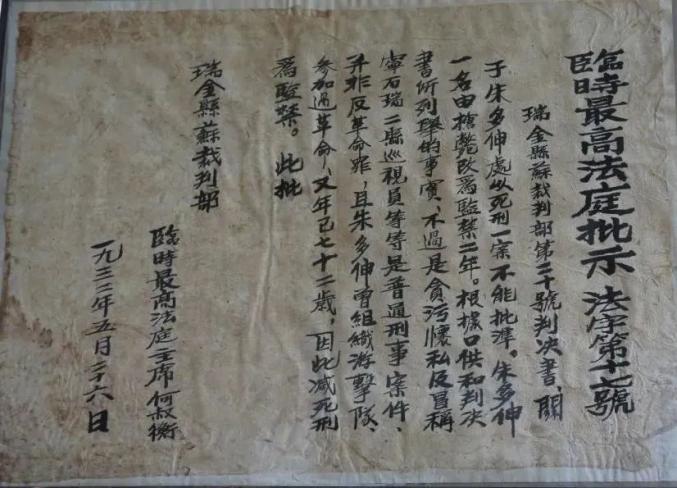 臨時最高法庭批示 法字第十七號
瑞金縣蘇裁判部第二十號判决書、關
于朱多伸處以死刑一案不能批準。朱多伸
一名由槍斃改爲監禁二年。根據口供和判决
書所列舉的事實、不過是貪污懷私及冒稱
寧石瑞二縣巡視員等等是普通刑事案件、
并非反革命罪，且朱多伸曾組織游擊隊、
參加過革命，又年已七十二歲，因此减死刑
爲監禁。 此批
瑞金縣蘇裁判部
臨時最高法庭主席何叔衡
一九三二年五月二十六日